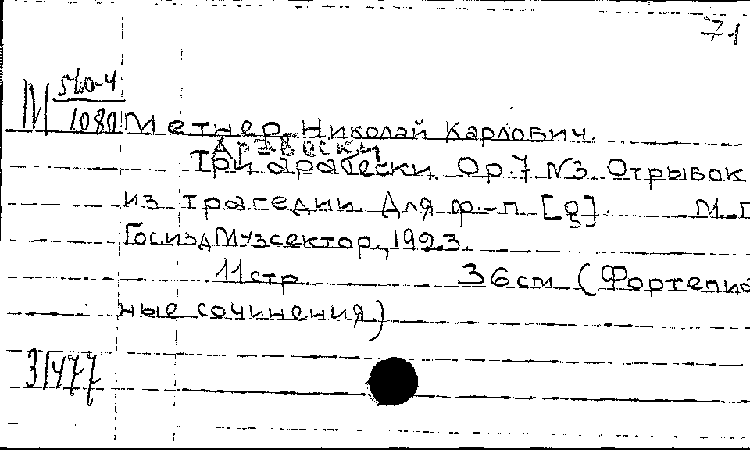 71
М 560-4
1080 Метнер Николай Карлович.
Арабески
Три арабески. Op. 7 №3. Отрывок
из трагедии. Для ф-п. [g]. М.
Госизд Музсектор, 1923.
11 стр. 36 см (Фортепиа
ные сочинения)
31477